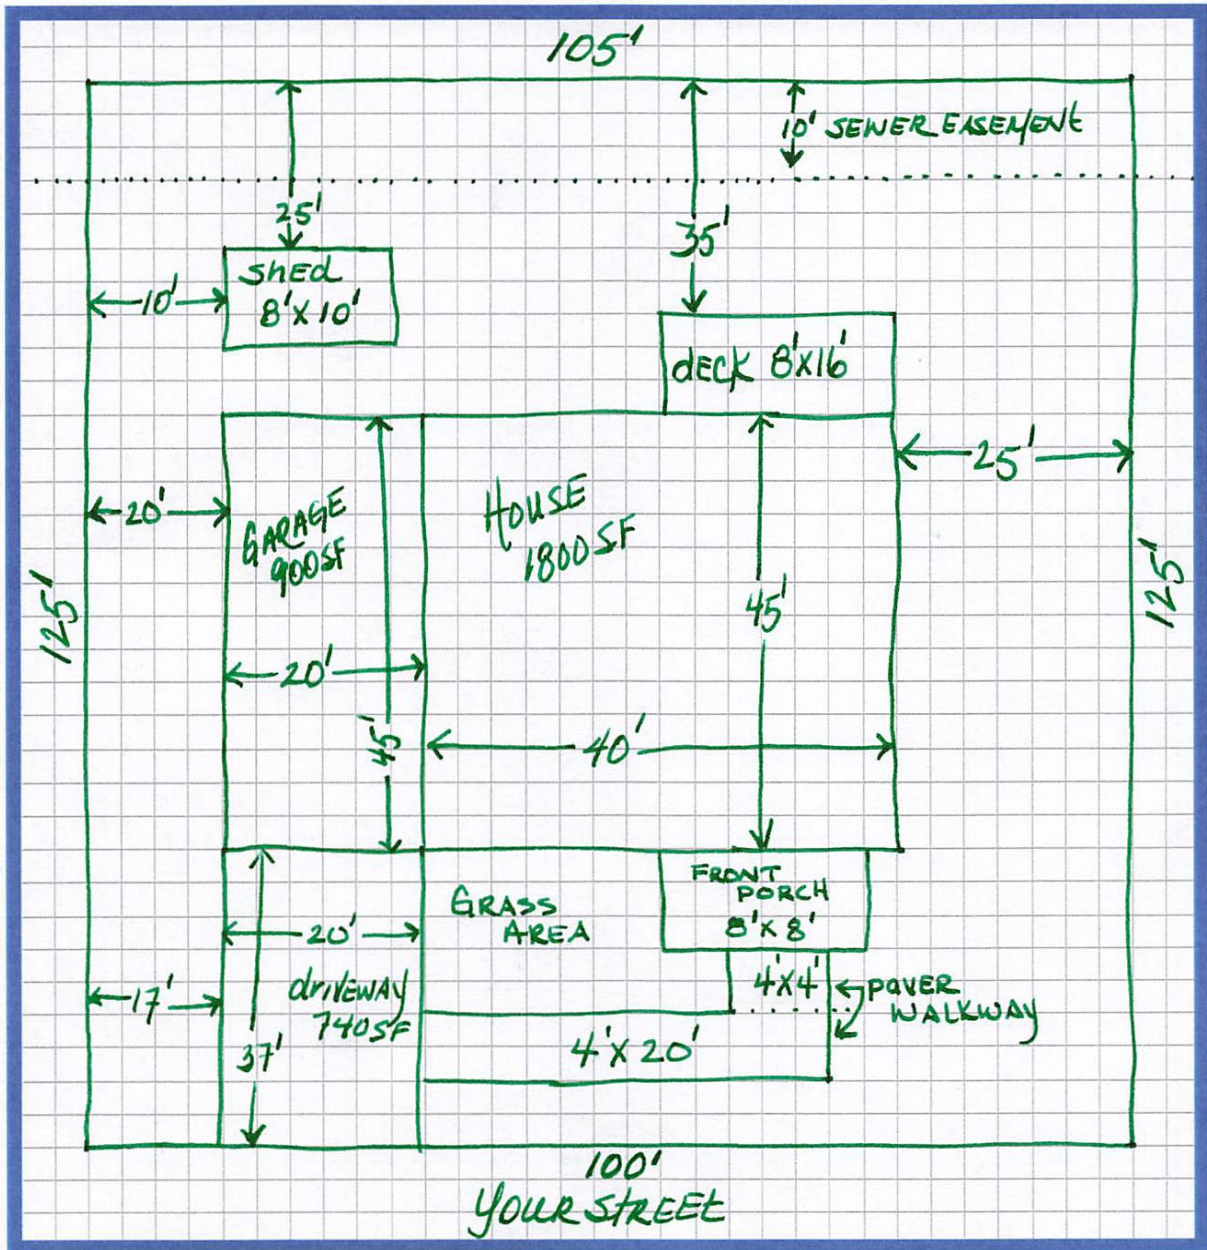 105'
10' SEWER EASEMENT
25'
35'
SHED
8'X10'
10'
DECK 8'X16'
25'
20'
GARAGE
900SF
HOUSE
1800SF
125'
45'
125'
20'
45'
40'
FRONT
PORCH
8'X8'
GRASS
AREA
20'
driveway
740SF
17'
37'
4'X4'
PAVER
WALKWAY
4'X20'
100'
YOUR STREET